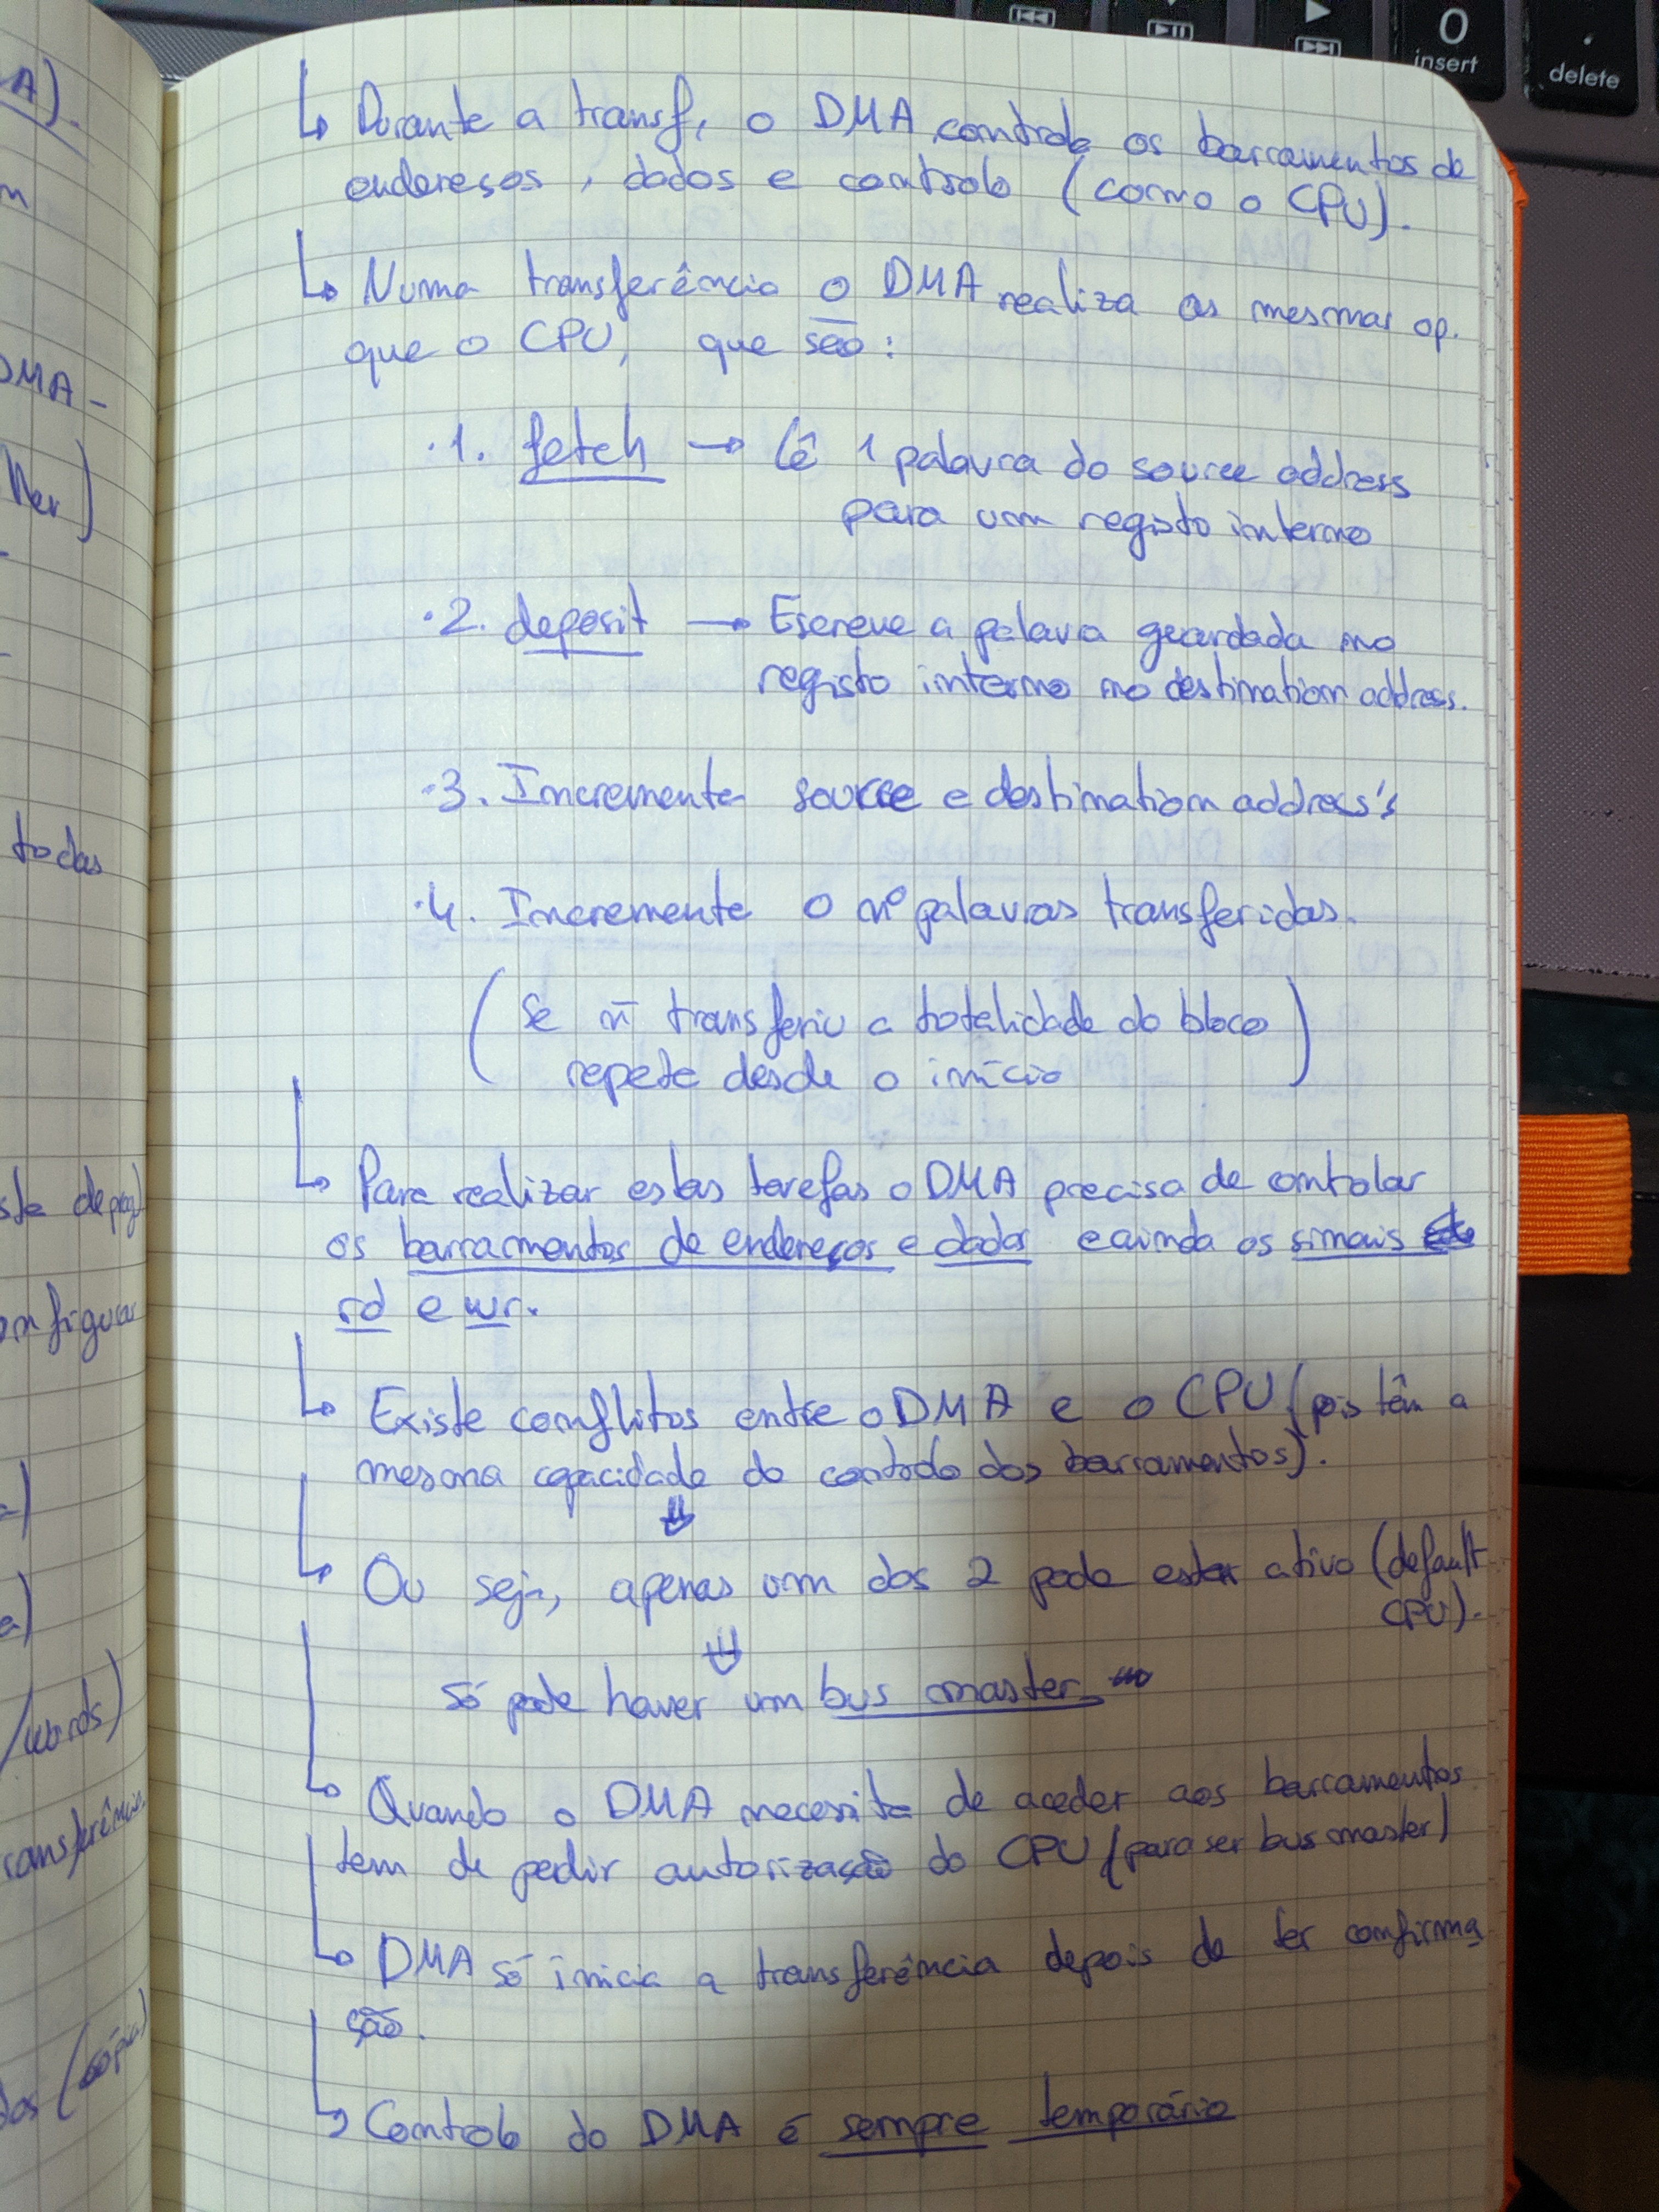 insert
delete
A).
DMA -
ller)
todas
ste
onfigurar
/words)
ransferência
dos (cópia)
↳ Durante a transf, o DMA controla os barramentos de
endereços, dados e controlo (como o CPU).
↳ Numa transferência o DMA realiza as mesmas op.
que o CPU, que são:
·1. fetch → Lê 1 palavra do source address
para um registo interno
·2. deposit → Escreve a palavra guardada no
registo interno no destination address.
·3. Incrementa source e destination address's
·4. Incremente o nº palavras transferidas.
(Se ñ transferiu a totalidade do bloco
repete desde o início)
↳ Para realizar estas tarefas o DMA precisa de controlar
os barramentos de endereços e dados e ainda os sinais
rd e wr.
↳ Existe conflitos entre o DMA e o CPU (pois têm a
mesma capacidade do controlo dos barramentos).
⇓
↳ Ou seja, apenas um dos 2 pode estar ativo (default
CPU).
⇓
só pode haver um bus master
↳ Quando o DMA necessita de aceder aos barramentos
tem de pedir autorização do CPU (para ser bus master)
↳ DMA só inicia a transferência depois de ter confirma
ção.
↳ Controlo do DMA é sempre temporário